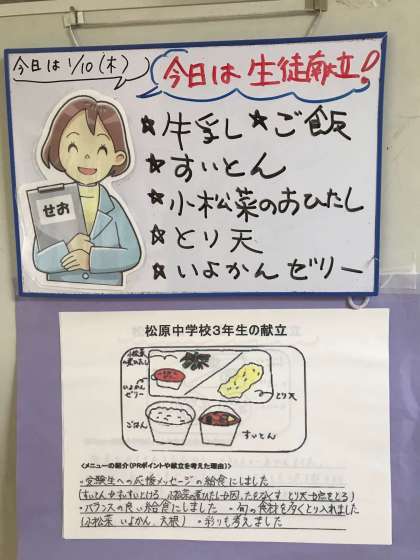 今日は 1/10 (木)
今日は 生徒献立!
★牛乳 ★ご飯
★すいとん
★小松菜のおひたし
★とり天
★いよかんゼリー
せお
松原中学校3年生の献立
小松菜
の煮びたし
いよかん
ゼリー
とり天
ごはん
すいとん
<メニューの紹介(PRポイントや献立を考えた理由)>
・受験生への応援メッセージの給食にしました
・バランスの良い給食にしました ・旬の食材を多くとり入れました
(小松菜 いよかん 大根) ・彩りも考えました